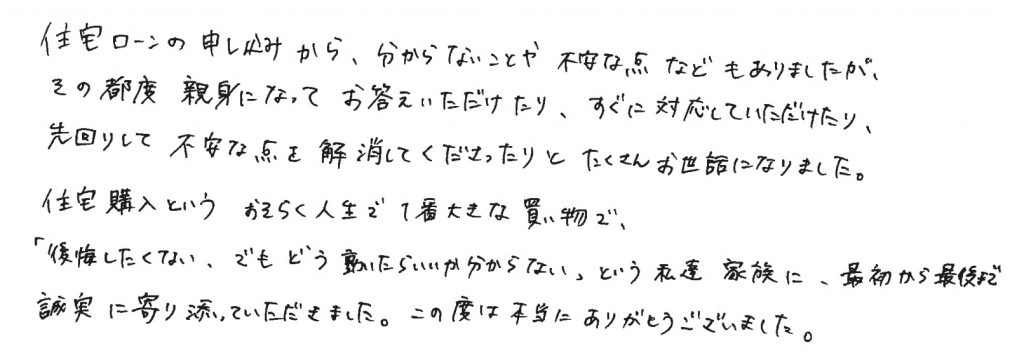 住宅ローンの申し込みから、分からないことや不安な点などもありましたが、
その都度親身になってお答えいただけたり、すぐに対応していただけたり、
先回りして不安な点を解消してくださったりとたくさんお世話になりました。
住宅購入というおそらく人生で1番大きな買い物で、
「後悔したくない、でもどう動いたらいいか分からない」という私達家族に、最初から最後まで
誠実に寄り添っていただきました。この度は本当にありがとうございました。